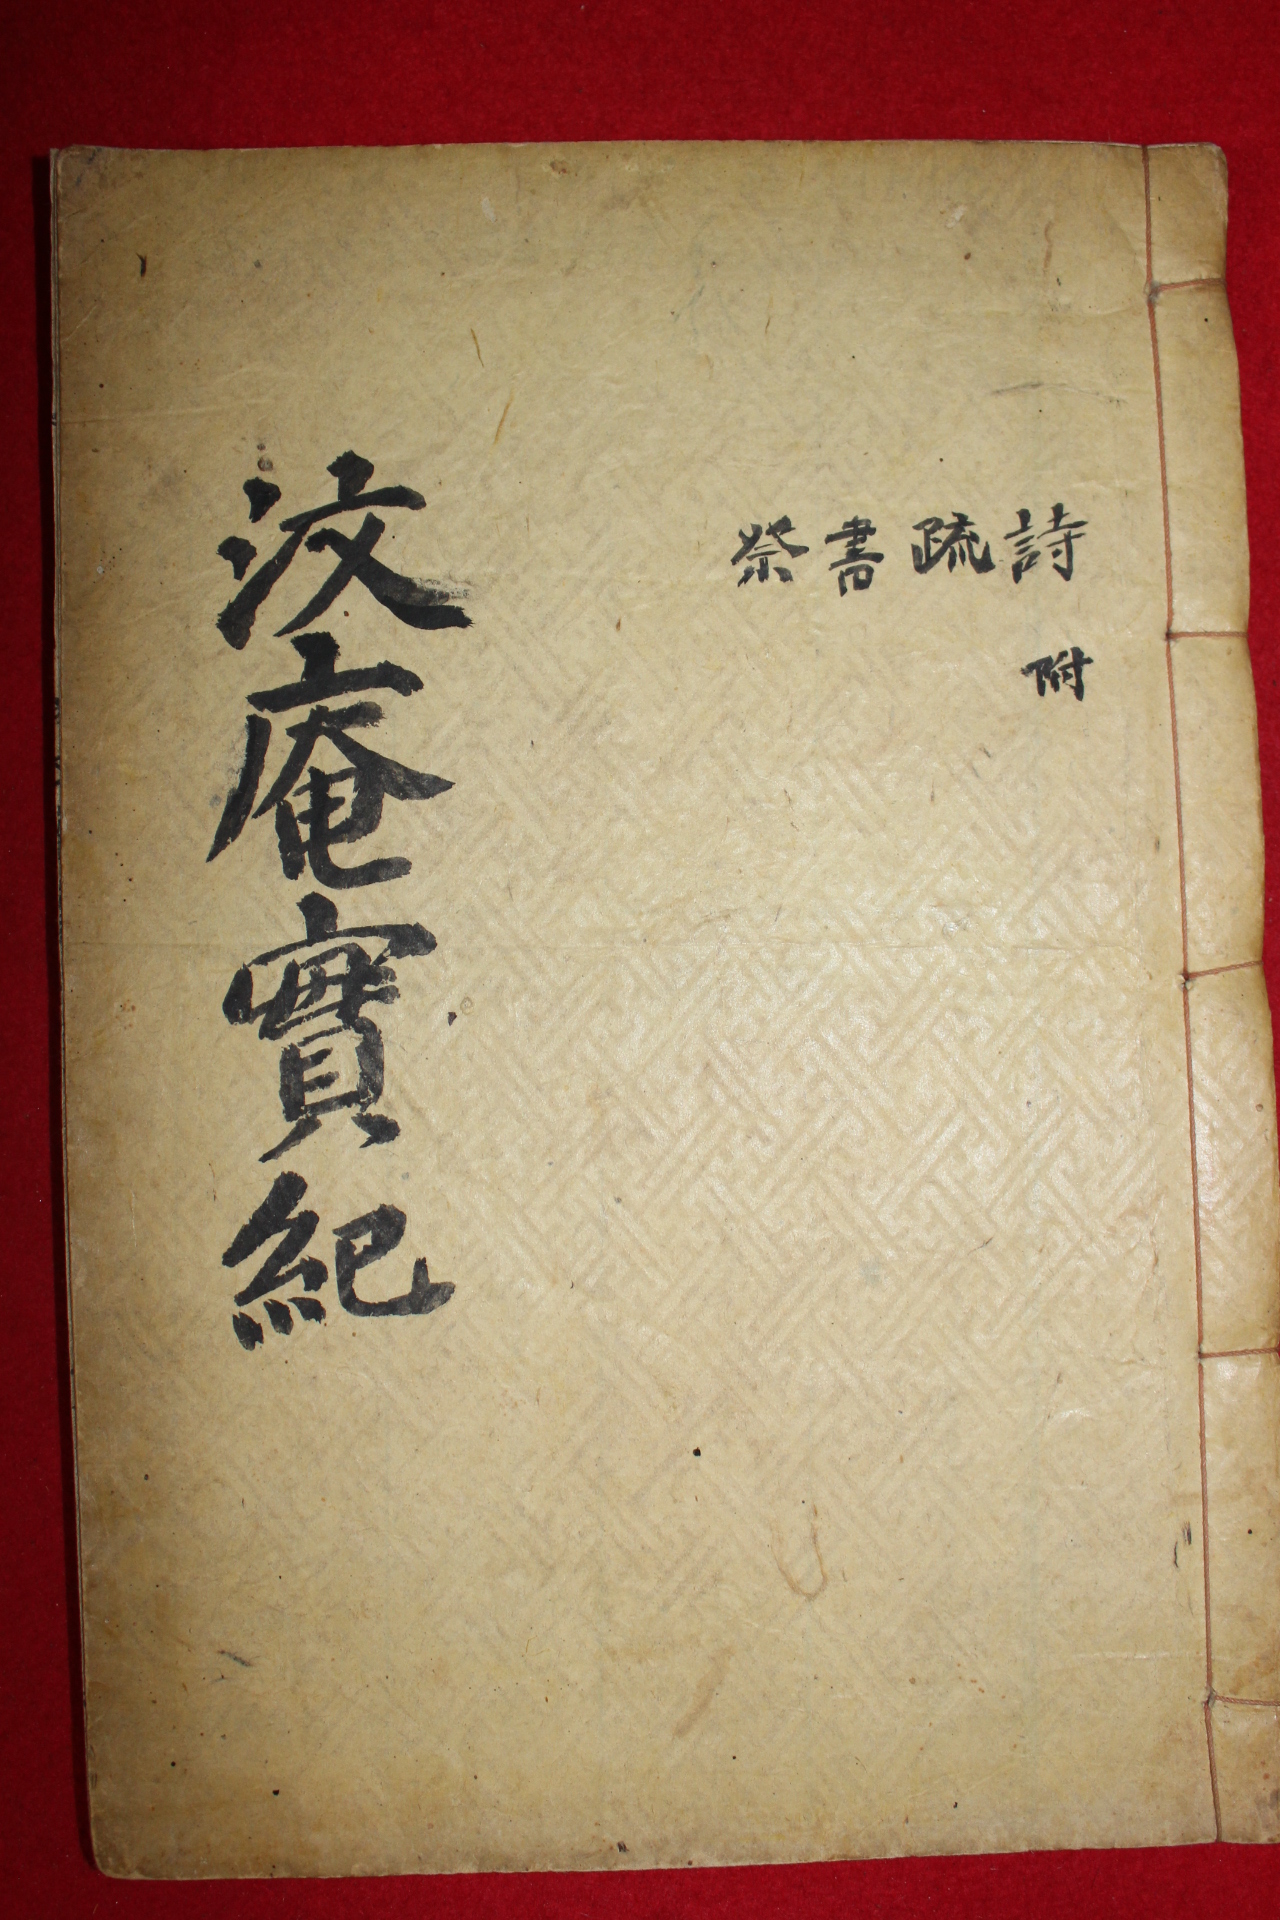 詩 附
疏
書
祭
汶庵實紀